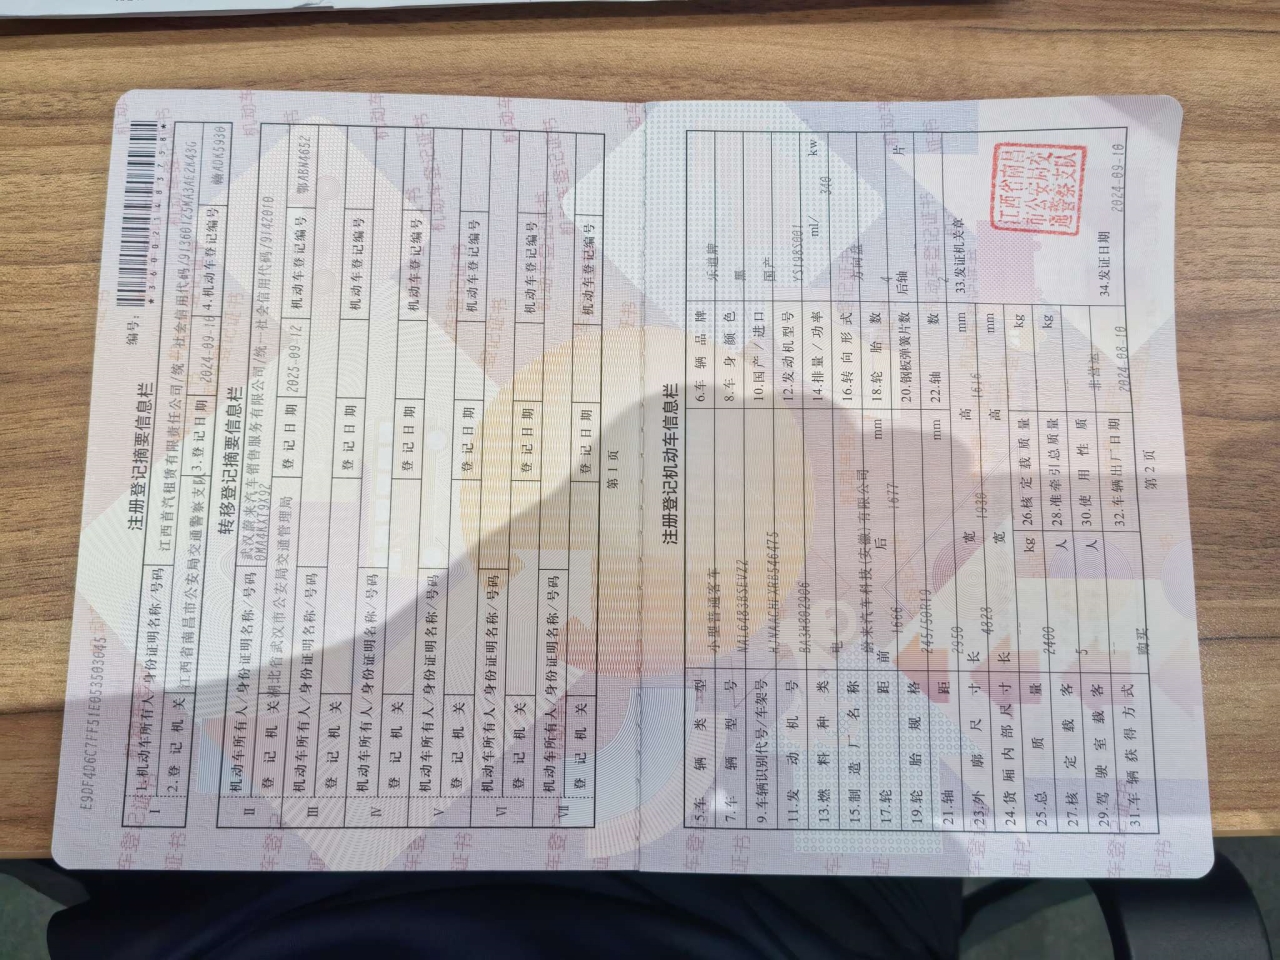 E9DF4D6C7FF51E053503045
注册登记摘要信息栏
编号：
I
1.机动车所有人/身份证明名称/号码 江西首汽租赁有限责任公司/统一社会信用代码/91360125MA3AE2K43G
2.登记机关 江西省南昌市公安局交通警察支队 3.登记日期 2024-09-10 4.机动车登记编号 赣ADK5930
转移登记摘要信息栏
II 机动车所有人/身份证明名称/号码
登记机关 湖北省武汉市公安局交通管理局 登记日期 2025-09-12 机动车登记编号 鄂ABN4652
III 机动车所有人/身份证明名称/号码
登记机关 登记日期 机动车登记编号
IV 机动车所有人/身份证明名称/号码
登记机关 登记日期 机动车登记编号
V 机动车所有人/身份证明名称/号码
登记机关 登记日期 机动车登记编号
VI 机动车所有人/身份证明名称/号码
登记机关 登记日期 机动车登记编号
VII 机动车所有人/身份证明名称/号码
登记机关 登记日期 机动车登记编号
第 1 页
注册登记机动车信息栏
5.车辆类型 小型普通客车 6.车辆品牌
7.车辆型号 8.车身颜色 黑
9.车辆识别代号/车架号 10.国产/进口 国产
11.发动机号 12.发动机型号
13.燃料种类 电 14.排量/功率 ml/ 340 kw
15.制造厂名称 蔚来汽车科技(安徽)有限公司 16.转向形式 方向盘
17.轮距 前 1666 后 1677 mm 18.轮胎数 4
19.轮胎规格 245/50R19 20.钢板弹簧片数 后轴 片
21.轴距 2950 mm 22.轴数 2
23.外廓尺寸 长 4828 宽 1930 高 1616 mm 33.发证机关章
24.货厢内部尺寸 长 宽 高 mm
江西省南昌
市公安局交
通警察支队
25.总质量 2400 kg 26.核定载质量 kg
27.核定载客 5 人 28.准牵引总质量 kg
29.驾驶室载客 -- 人 30.使用性质 非营运
31.车辆获得方式 购买 32.车辆出厂日期 2024-08-10 34.发证日期 2024-09-10
第 2 页